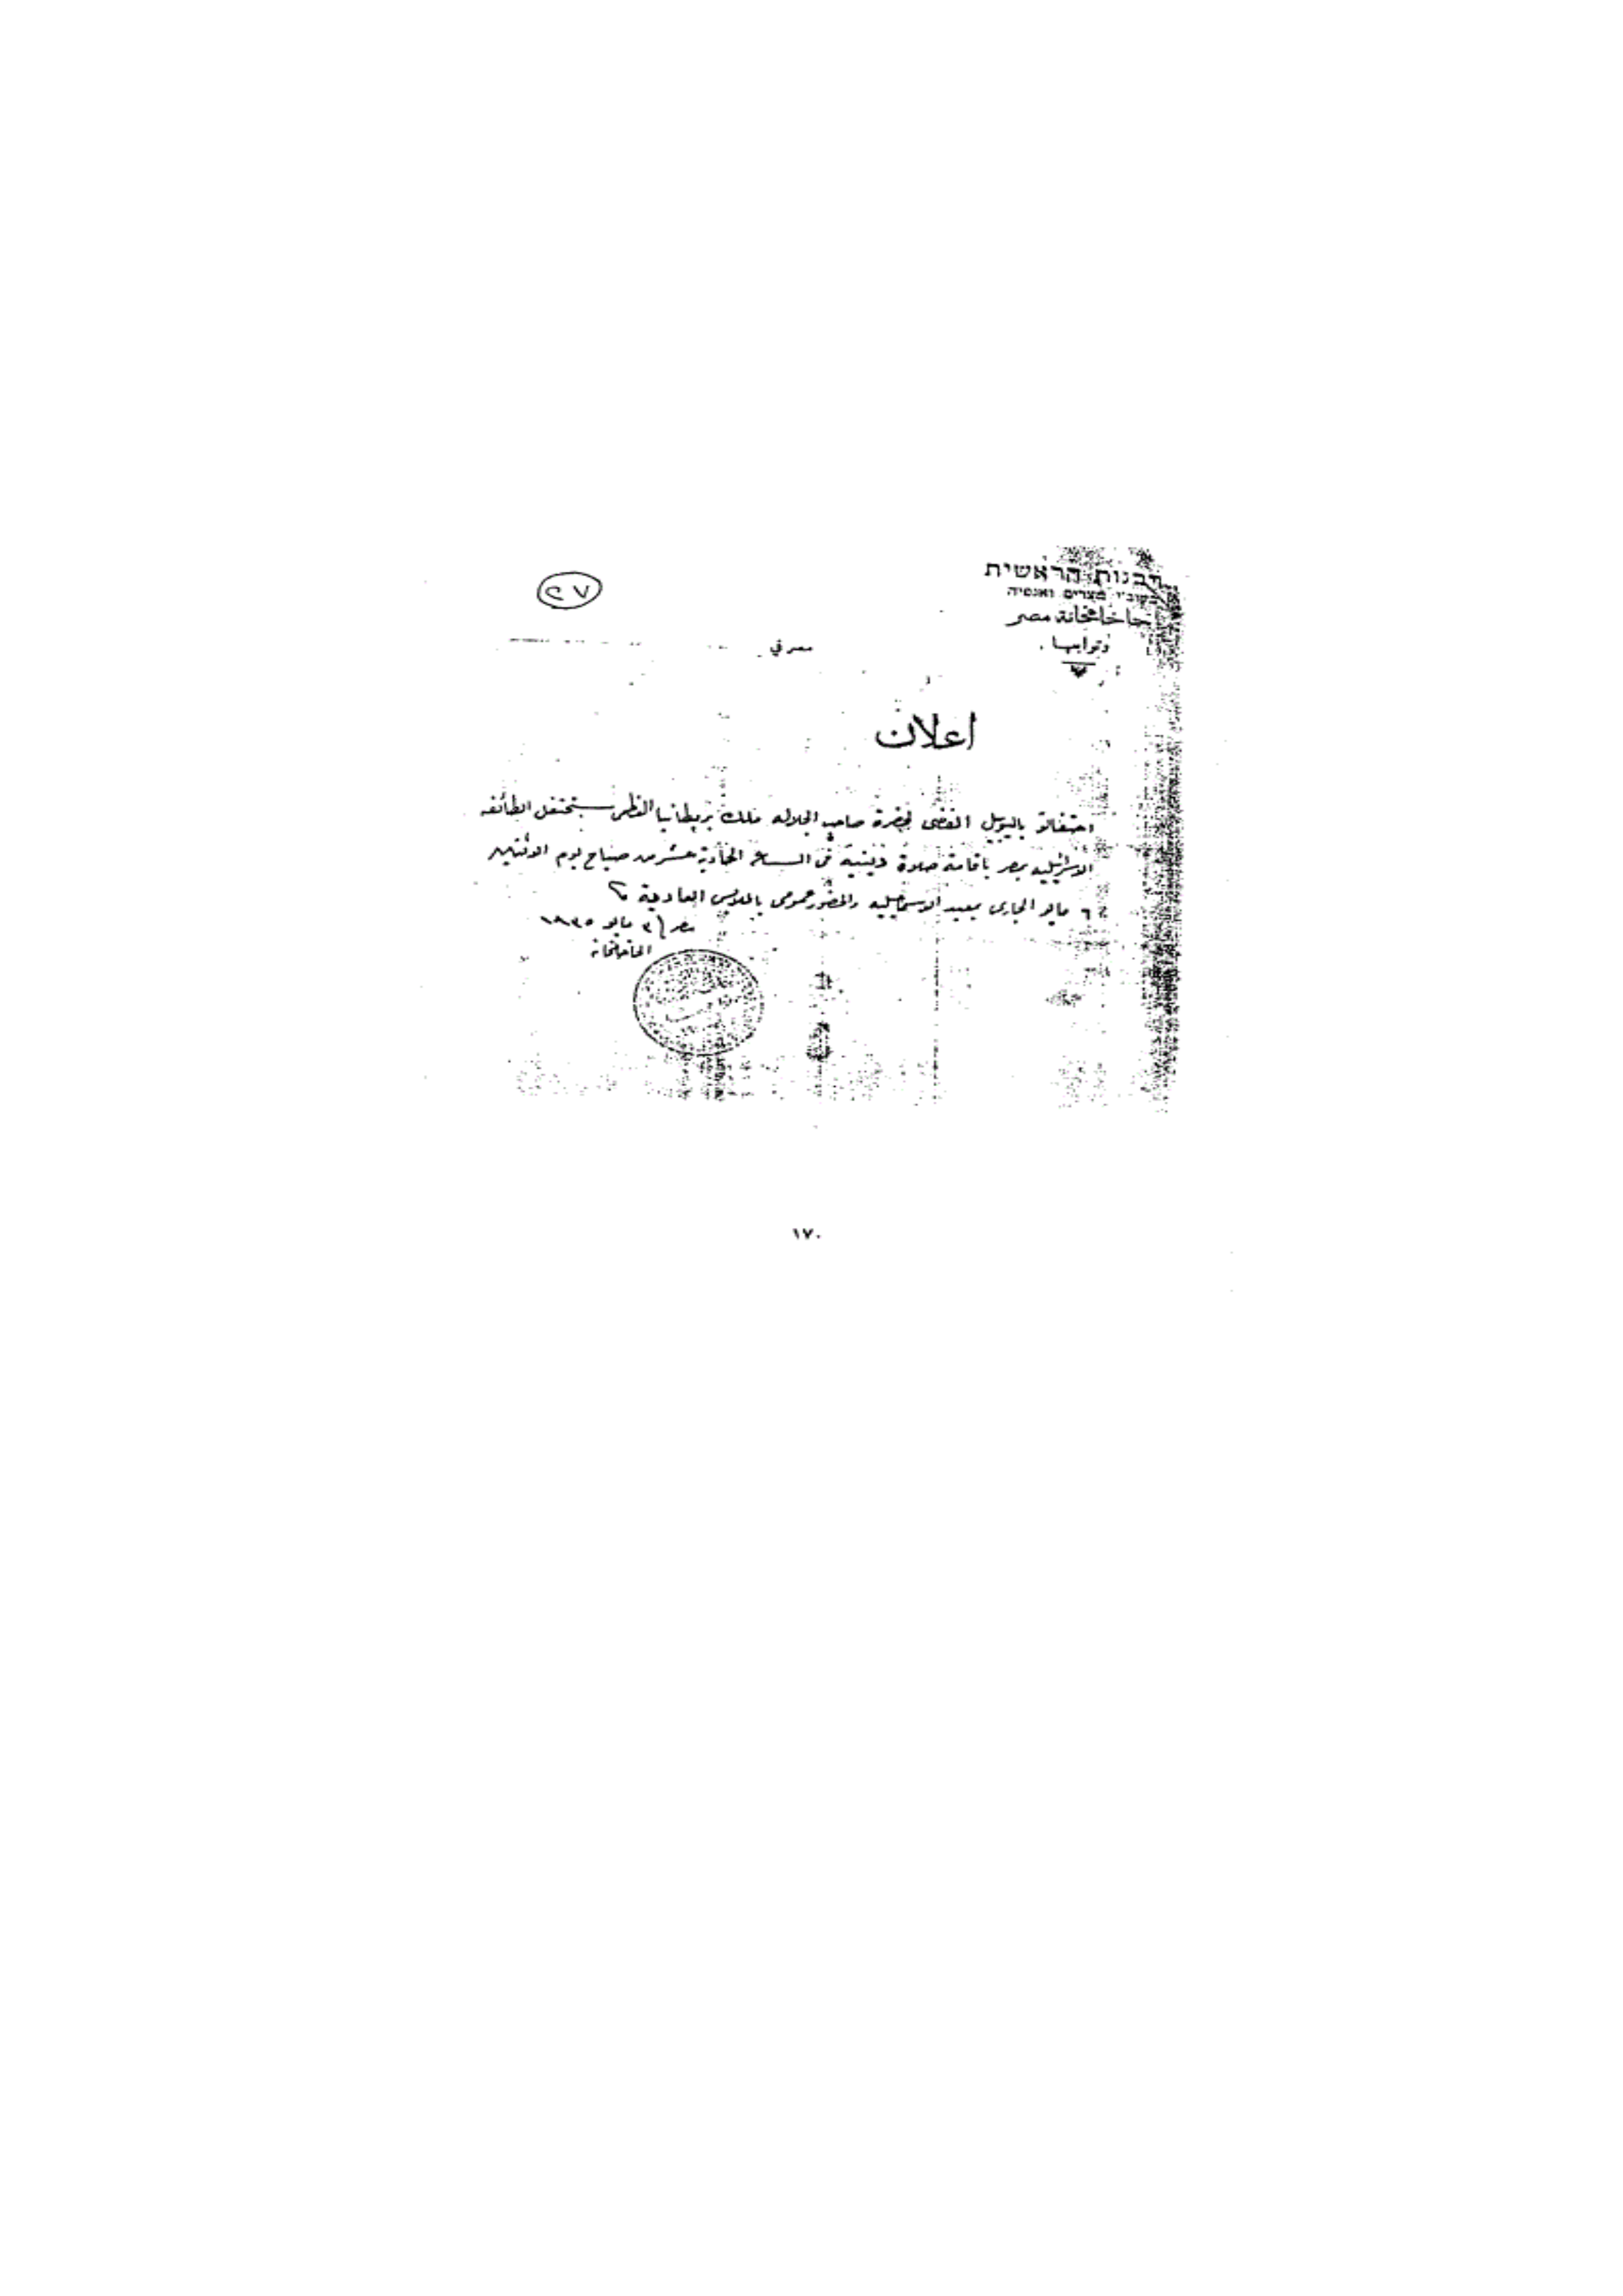 הרבנות הראשית
בקוב"י מצרים ואגפיה
حاخامخانة مصر
وتوابعها
٢٧
مصر في
اعلان
احتفالا باليوبيل الفضى لحضرة صاحب الجلاله ملك بريطانيا العظمى ستحتفل الطائفه
الاسرائيليه بمصر باقامة صلاة دينية فى الساعة الحادية عشر من صباح يوم الاثنين
٦ مايو الجارى بمعبد الاسماعيليه والحضور عمومى بالملابس العادية
مصر ٣ مايو ١٩٣٥
الحاخامخانه
١٧٠